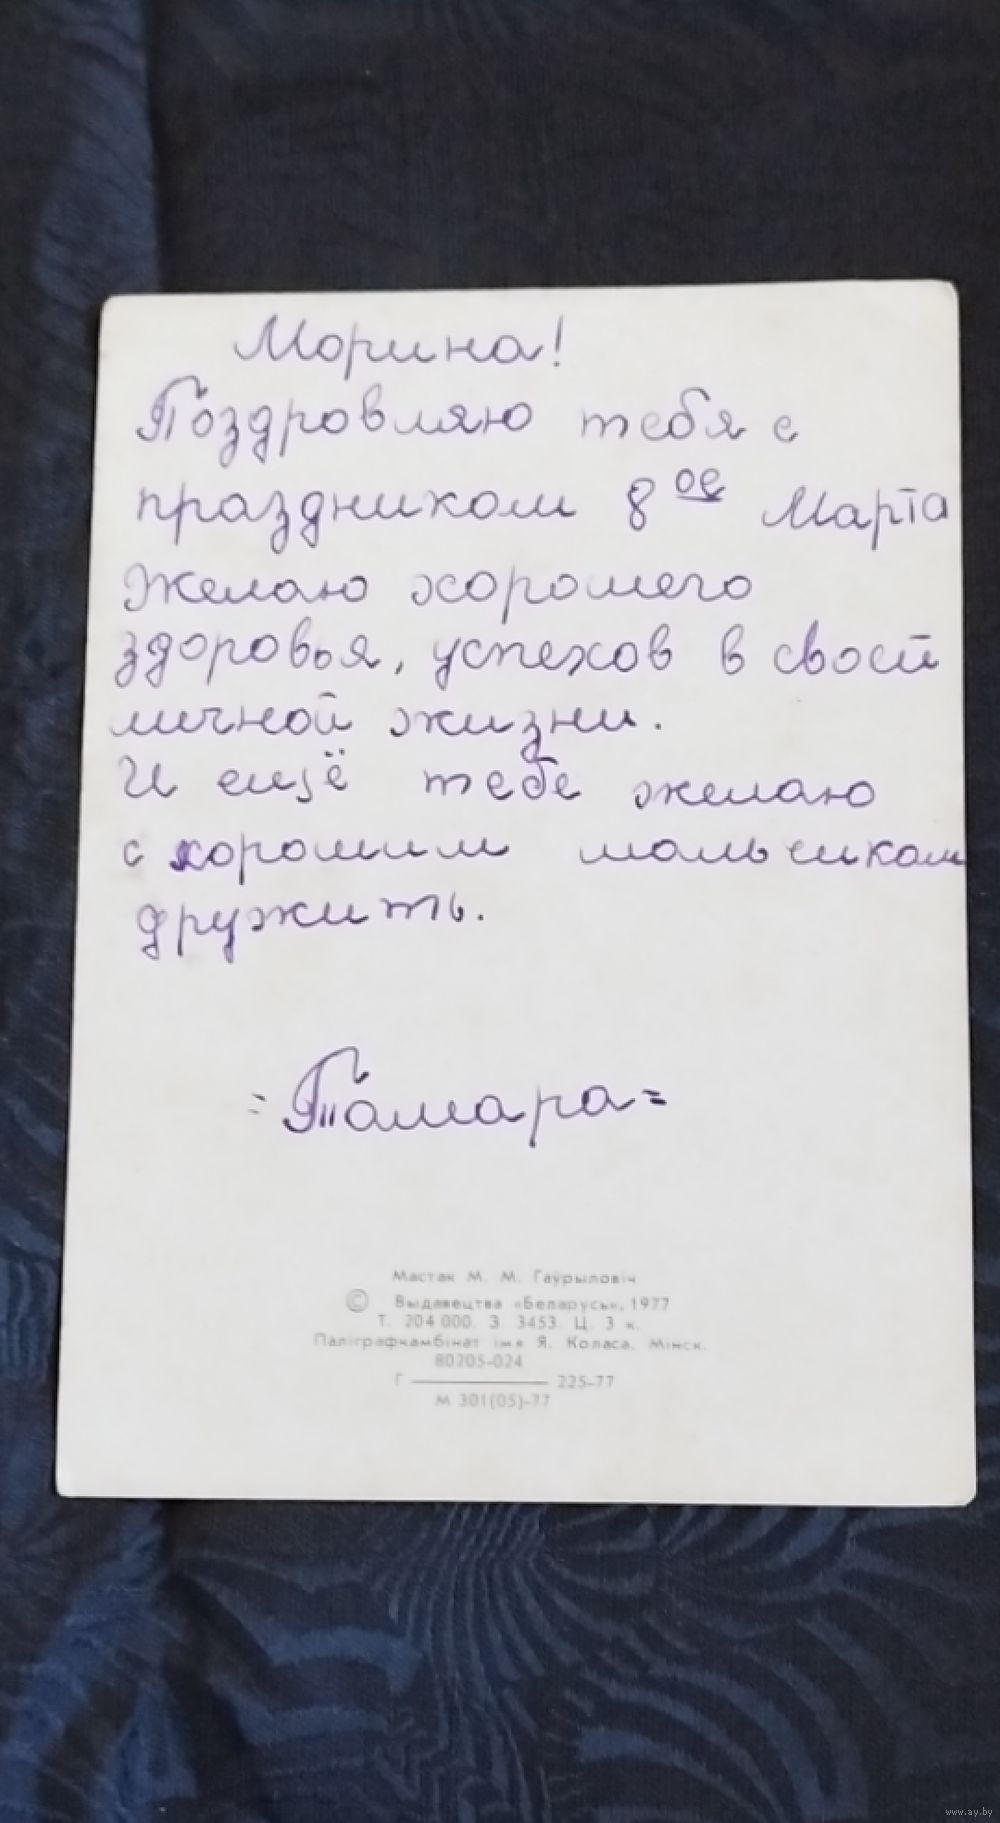 Марина!
Поздровляю тебя с
праздником 8 ое Марта
Желаю хорошего
здоровья, успехов в своей
личной жизни.
И ещё тебе желаю
с хорошим мальчиком
дружить.
=Тамара=
Мастак М. М. Гаўрыловіч
© Выдавецтва «Беларусь», 1977
Т. 204 000. З. 3453. Ц. 3 к.
Паліграфкамбінат імя Я. Коласа. Мінск.
80205-024
Г ———— 225-77
М 301(05)-77
www.ay.by